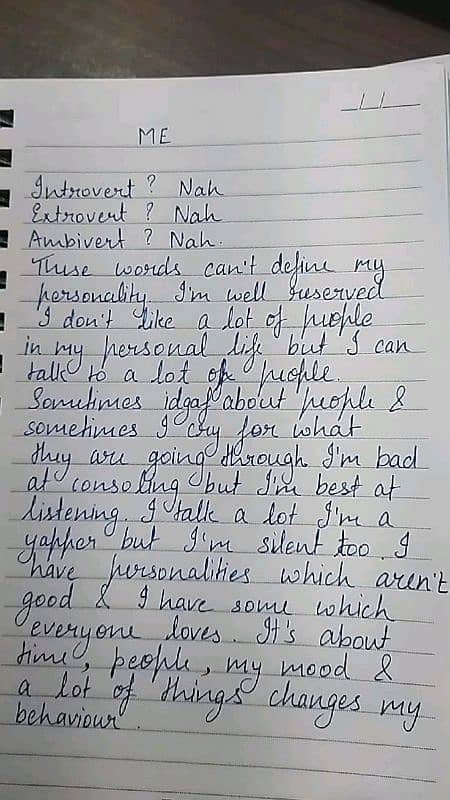 ME
Introvert ? Nah
Extrovert ? Nah
Ambivert ? Nah.
These words can't define my
personality. I'm well reserved
I don't like a lot of people
in my personal life but I can
talk to a lot of people.
Sometimes idgaf about people &
sometimes I cry for what
they are going through I'm bad
at consoling but I'm best at
listening. I talk a lot I'm a
yapper but I'm silent too. I
have personalities which aren't
good & I have some which
everyone loves. It's about
time, people, my mood &
a lot of things changes my
behaviour.